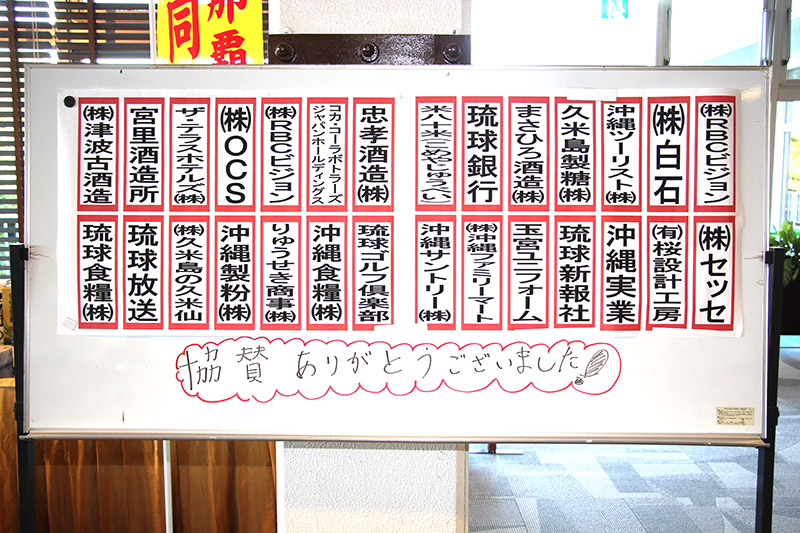 那覇
同
㈱RBCビジョン
㈱白石
沖縄ツーリスト㈱
久米島製糖㈱
まさひろ酒造㈱
琉球銀行
米八十米(こめやじゅうべい)
忠孝酒造㈱
コカ・コーラボトラーズ
ジャパンホールディングス
㈱RBCビジョン
㈱OCS
ザ・テラスホテルズ㈱
宮里酒造所
㈱津波古酒造
㈱セッセ
㈲桜設計工房
沖縄実業
琉球新報社
玉宮ユニフォーム
㈱沖縄ファミリーマート
沖縄サントリー㈱
琉球ゴルフ倶楽部
沖縄食糧㈱
りゅうせき商事㈱
沖縄製粉㈱
㈱久米島の久米仙
琉球放送
琉球食糧㈱
協賛 ありがとうございました!